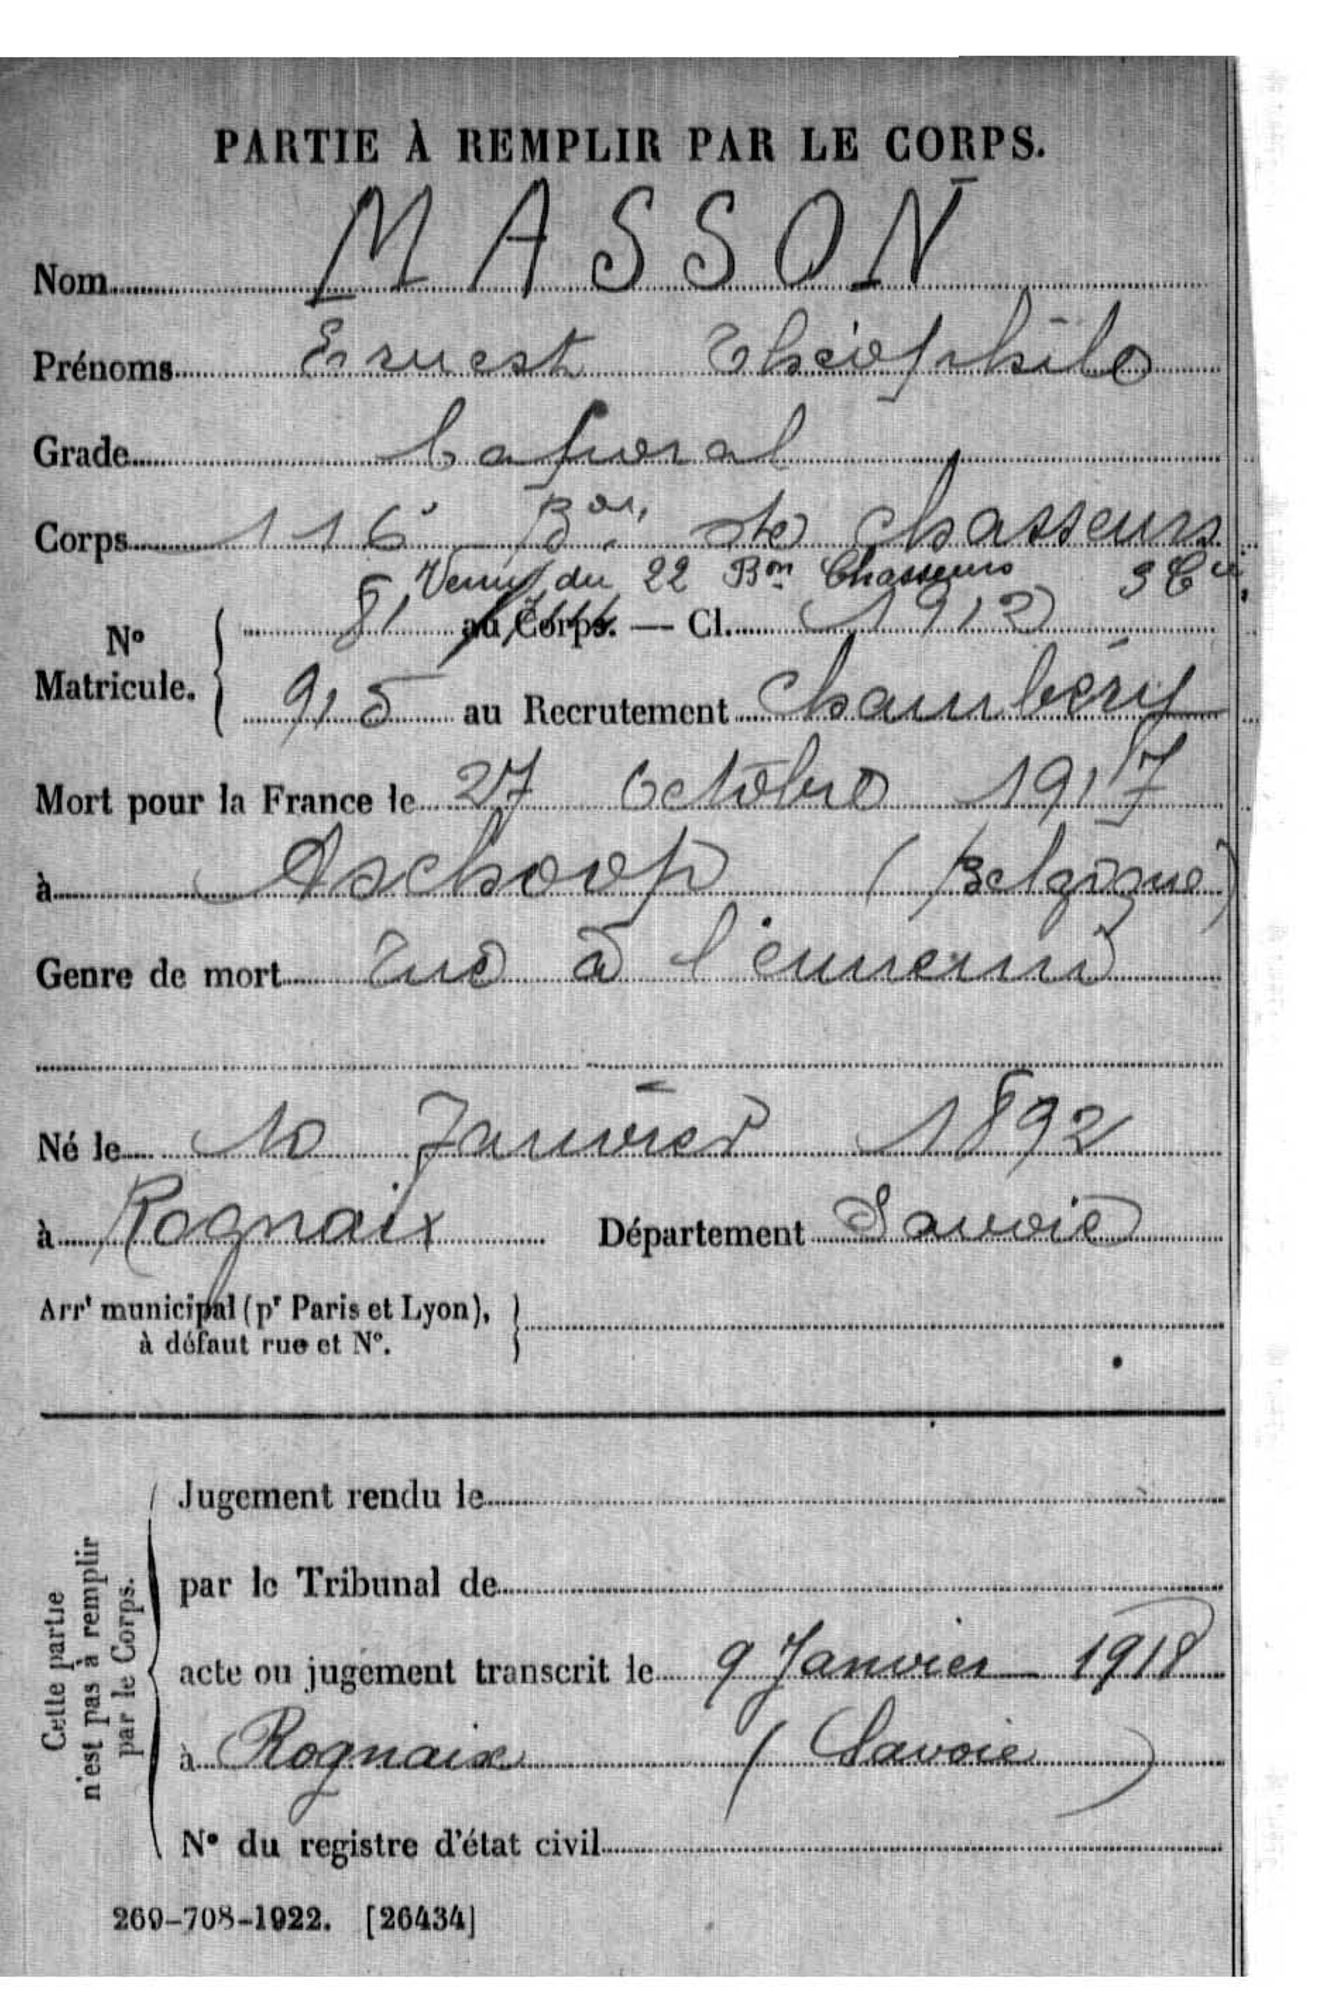 PARTIE À REMPLIR PAR LE CORPS.
Nom MASSON
Prénoms Ernest Théophile
Grade Caporal
Corps 116e Bon de Chasseurs
Venu du 22 Bon Chasseurs 3 Cie
N° Matricule. 81 au Corps. — Cl. 1912
915 au Recrutement Chambéry
Mort pour la France le 27 Octobre 1917
à Aschoop (Belgique)
Genre de mort Tué à l'ennemi
Né le 10 Janvier 1892
à Rognaix Département Savoie
Arrt municipal (pr Paris et Lyon),
à défaut rue et N°.
Cette partie
n'est pas à remplir
par le Corps.
Jugement rendu le
par le Tribunal de
acte ou jugement transcrit le 9 Janvier 1918
à Rognaix (Savoie)
N° du registre d'état civil
269-708-1922. [26434]